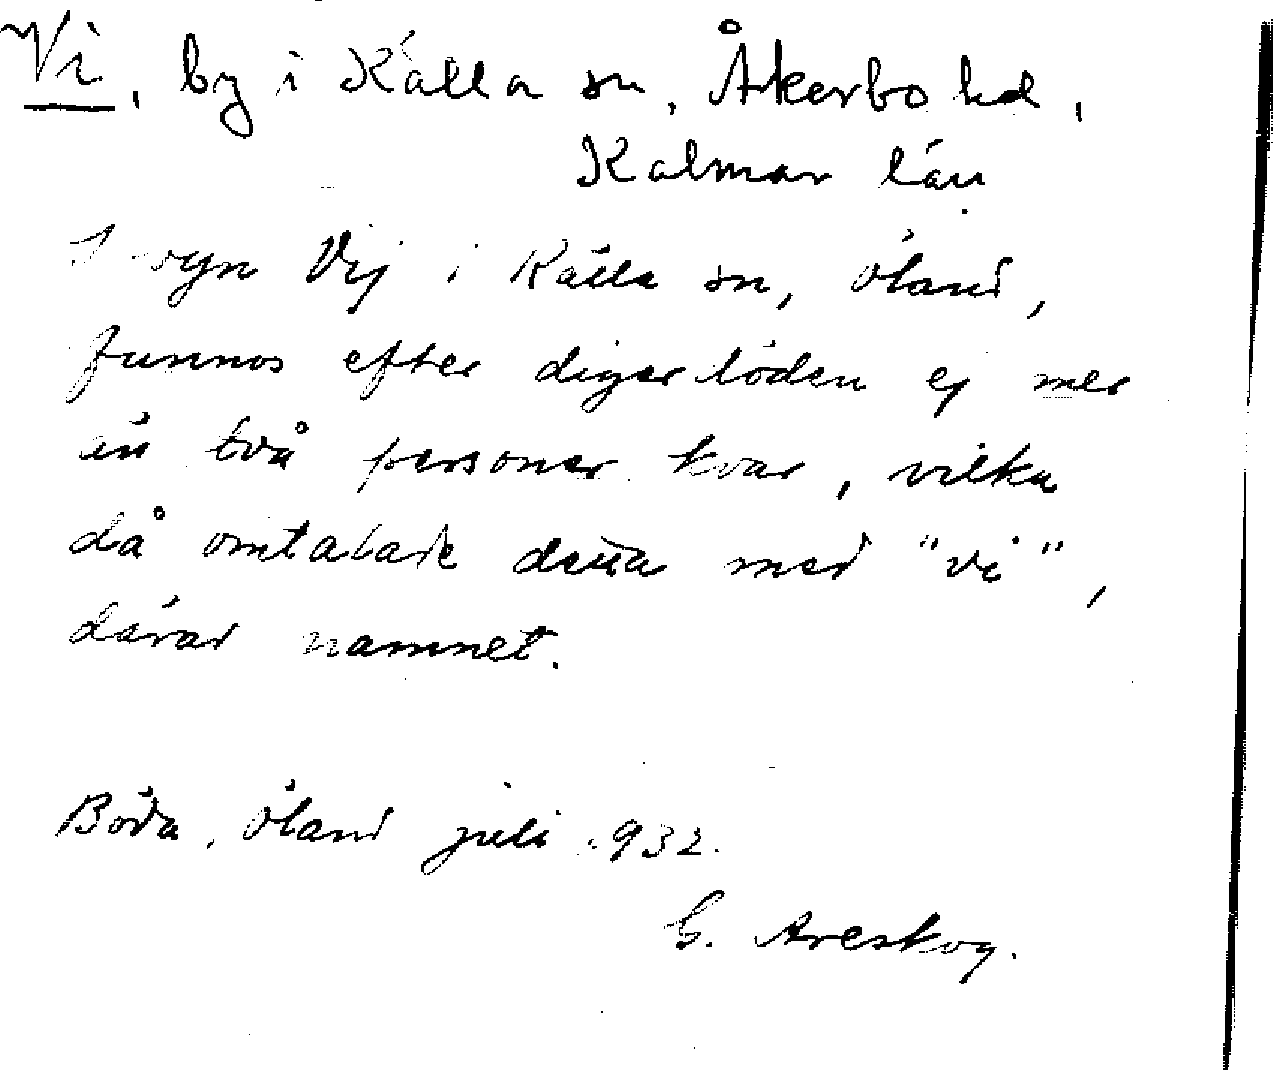 Vi, by i Källa sn, Åkerbo hd,
Kalmar län
I byn Vij i Källa sn, Öland,
funnos efter digerdöden ej mer
än två personer kvar, vilka
då omtalade dessa med "vi",
därav namnet.
Böda, Öland juli 1932.
G. Areskog.